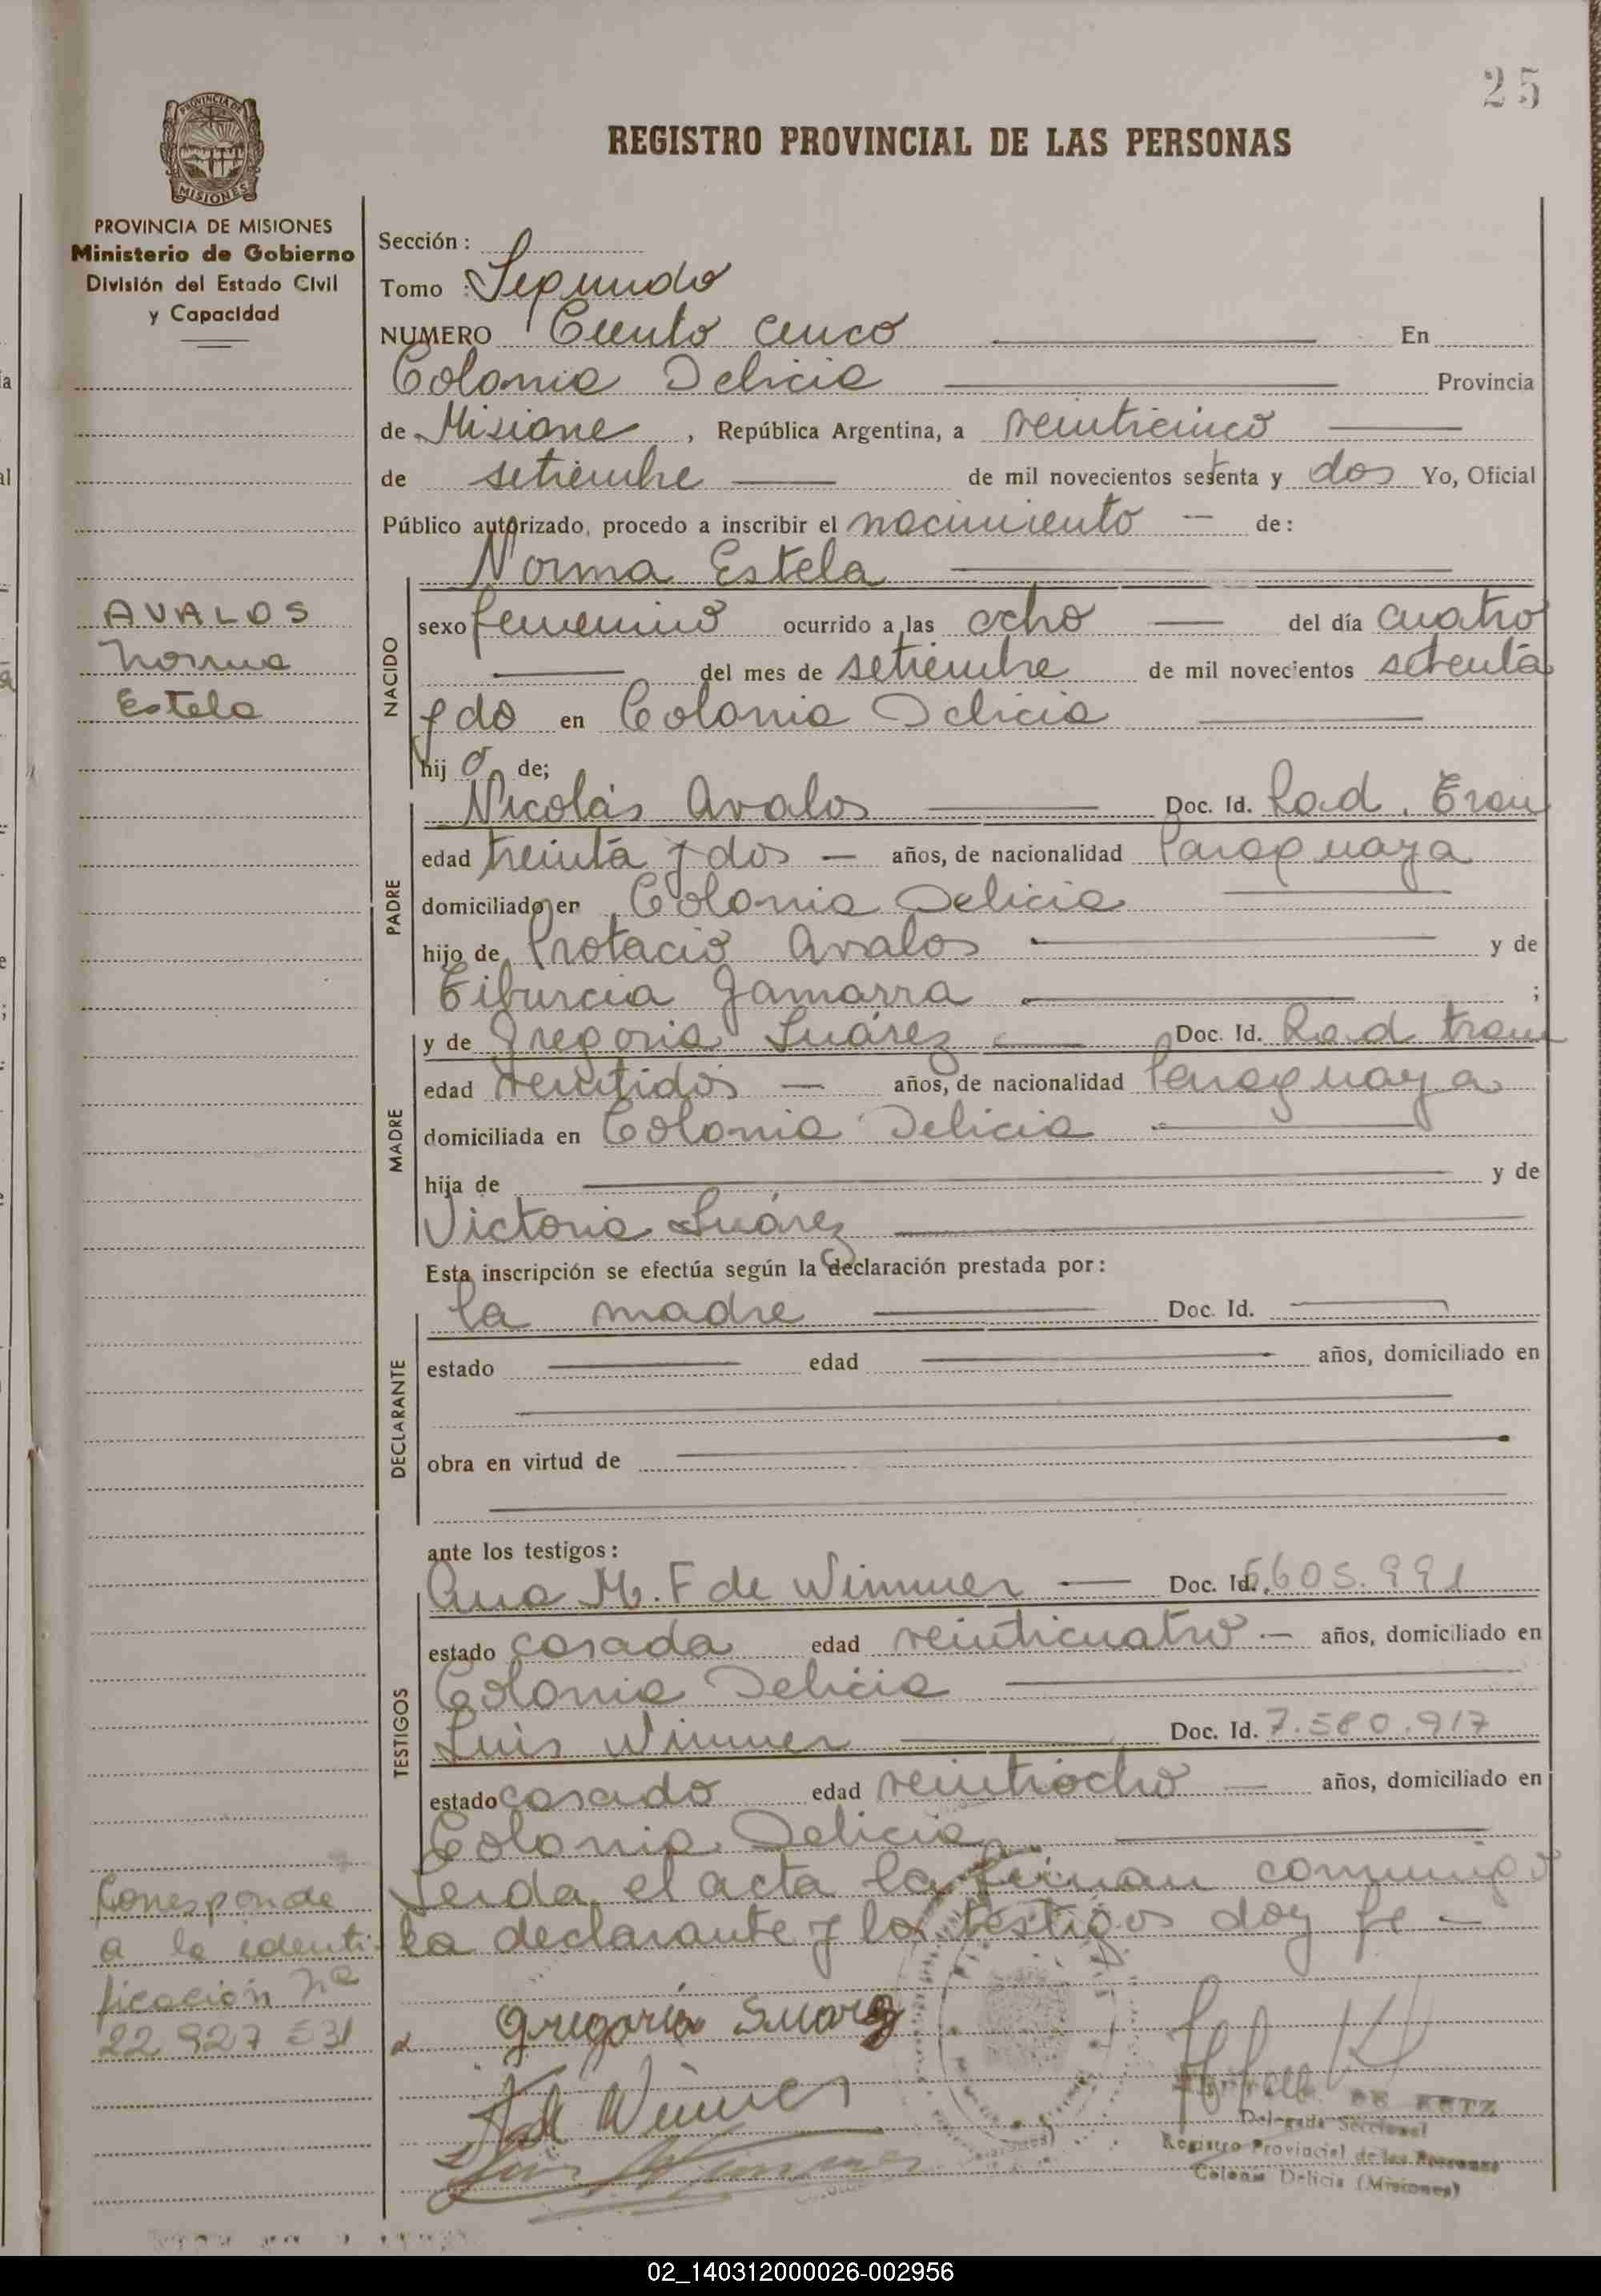 25
REGISTRO PROVINCIAL DE LAS PERSONAS
PROVINCIA DE
MISIONES
PROVINCIA DE MISIONES
Ministerio de Gobierno
División del Estado Civil
y Capacidad
AVALOS
Norma
Estela
Corresponde
a la identi-
ficación Nº
22 927 531
Sección :
Tomo : Segundo
NUMERO Ciento cinco En
Colonia Delicia Provincia
de Misione , República Argentina, a veinticinco
de setiembre de mil novecientos setenta y dos Yo, Oficial
Público autorizado, procedo a inscribir el nacimiento — de:
Norma Estela
NACIDO
sexo femenino ocurrido a las ocho del día cuatro
del mes de setiembre de mil novecientos setenta
y do en Colonia Delicia
hij a de;
PADRE
Nicolás Avalos Doc. Id. Rad. Tram
edad treinta y dos — años, de nacionalidad Paraguaya
domiciliado en Colonia Delicia
hijo de Protacio Avalos y de
Tiburcia Gamarra ;
MADRE
y de Gregoria Suárez Doc. Id. Rad tram
edad veintidos — años, de nacionalidad Paraguaya
domiciliada en Colonia Delicia
hija de y de
Victoria Suárez
Esta inscripción se efectúa según la declaración prestada por :
DECLARANTE
la madre Doc. Id.
estado edad años, domiciliado en
obra en virtud de
ante los testigos :
TESTIGOS
Ana M. F de Wimmer — Doc. Id. 5605.991
estado casada edad veinticuatro — años, domiciliado en
Colonia Delicia
Luis Wimmer Doc. Id. 7.580.917
estado casado edad veintiocho — años, domiciliado en
Colonia Delicia.
Leida el acta la firman conmigo
la declarante y los testigos doy fe —
Gregoria Suarez
de Wimmer
Luis Wimmer
DE KUTZ
Delegada Seccional
Registro Provincial de las Personas
Colonia Delicia (Misiones)
02_140312000026-002956